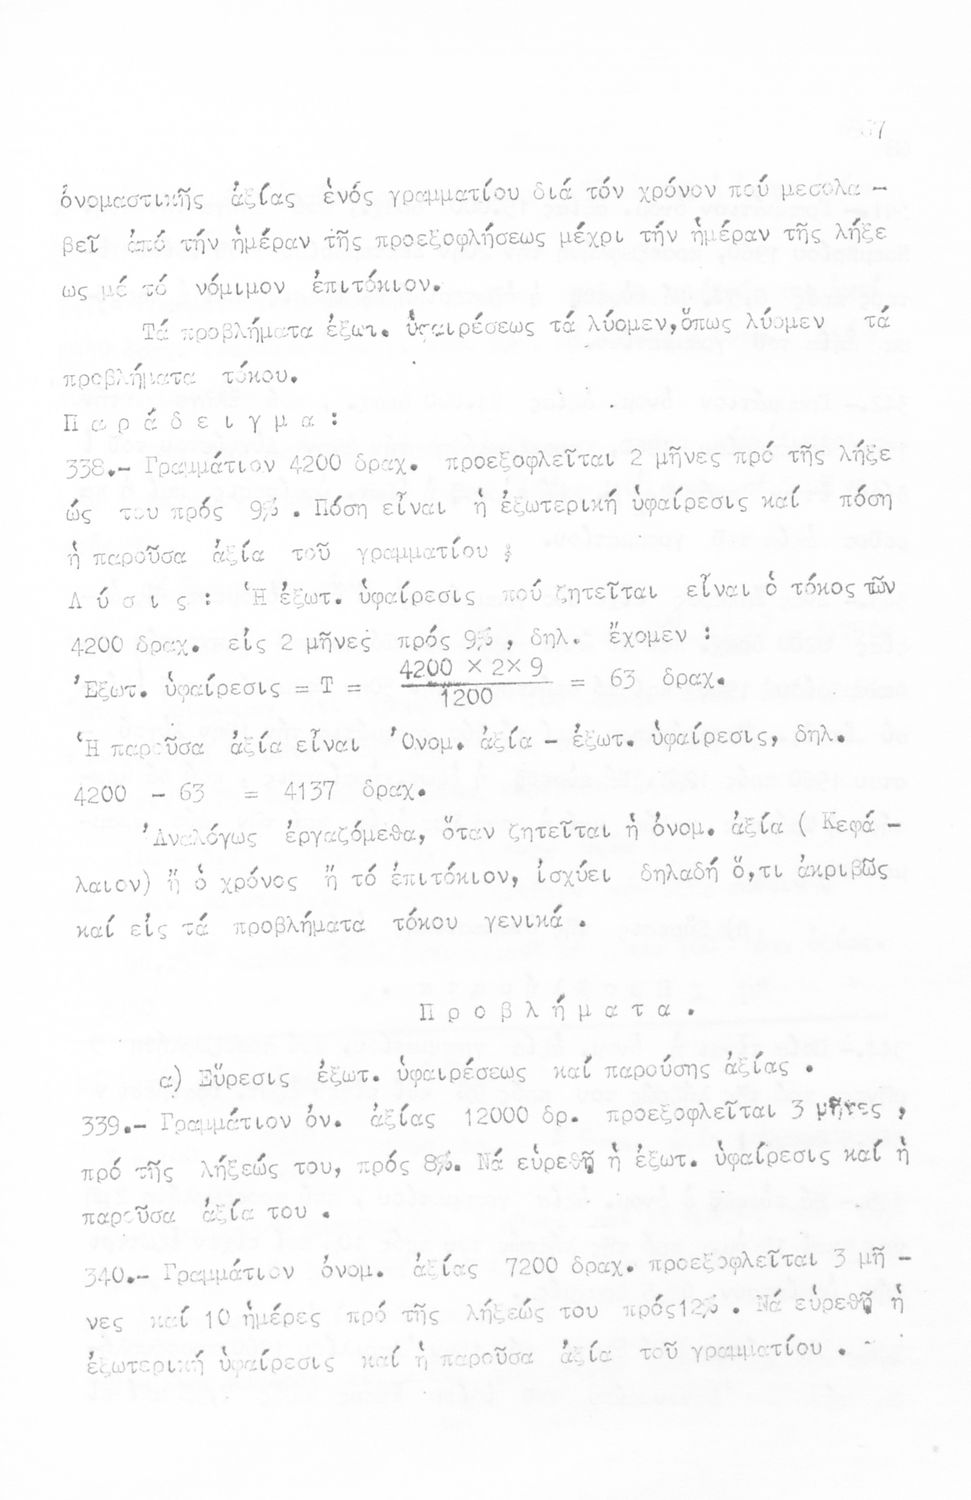 ὀνομαστικῆς ἀξίας ἑνός γραμματίου διά τόν χρόνον πού μεσολα -
βεῖ ἀπό τήν ἡμέραν τῆς προεξοφλήσεως μέχρι τήν ἡμέραν τῆς λήξε
ως μέ τό νόμιμον ἐπιτόκιον.
Τά προβλήματα ἐξωτ. ὑφαιρέσεως τά λύομεν,ὅπως λύομεν τά
προβλήματα τόκου.
Π α ρ ά δ ε ι γ μ α :
338.- Γραμμάτιον 4200 δραχ. προεξοφλεῖται 2 μῆνες πρό τῆς λήξε
ώς του πρός 9% . Πόση εἶναι ἡ ἐξωτερική ὑφαίρεσις καί πόση
ἡ παροῦσα ἀξία τοῦ γραμματίου ;
Λ ύ σ ι ς : Ἡ ἐξωτ. ὑφαίρεσις πού ζητεῖται εἶναι ὁ τόκος τῶν
4200 δραχ. εἰς 2 μῆνες πρός 9% , δηλ. ἔχομεν :
Ἐξωτ. ὑφαίρεσις = Τ = 4200 × 2× 9 / 1200 = 63 δραχ.
Ἡ παροῦσα ἀξία εἶναι Ὀνομ. ἀξία - ἐξωτ. ὑφαίρεσις, δηλ.
4200 - 63 = 4137 δραχ.
Ἀναλόγως ἐργαζόμεθα, ὅταν ζητεῖται ἡ ὀνομ. ἀξία ( Κεφά -
λαιον) ἤ ὁ χρόνος ἤ τό ἐπιτόκιον, ἰσχύει δηλαδή ὅ,τι ἀκριβῶς
καί εἰς τά προβλήματα τόκου γενικά .
Π ρ ο β λ ή μ α τ α .
α) Εὕρεσις ἐξωτ. ὑφαιρέσεως καί παρούσης ἀξίας .
339.- Γραμμάτιον ὀν. ἀξίας 12000 δρ. προεξοφλεῖται 3 μῆνες ,
πρό τῆς λήξεώς του, πρός 8%. Νά εὑρεθῇ ἡ ἐξωτ. ὑφαίρεσις καί ἡ
παροῦσα ἀξία του .
340.- Γραμμάτιον ὀνομ. ἀξίας 7200 δραχ. προεξοφλεῖται 3 μῆ -
νες καί 10 ἡμέρες πρό τῆς λήξεώς του πρός12% . Νά εὑρεθῇ ἡ
ἐξωτερική ὑφαίρεσις καί ἡ παροῦσα ἀξία τοῦ γραμματίου .